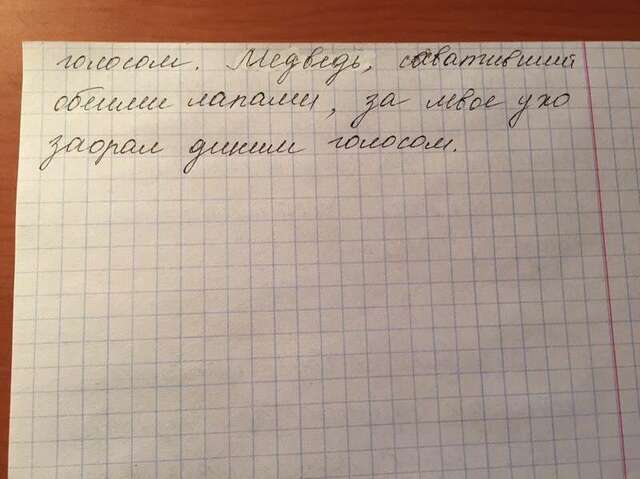 голосом. Медведь, схвативший
обеими лапами, за левое ухо
заорал диким голосом.